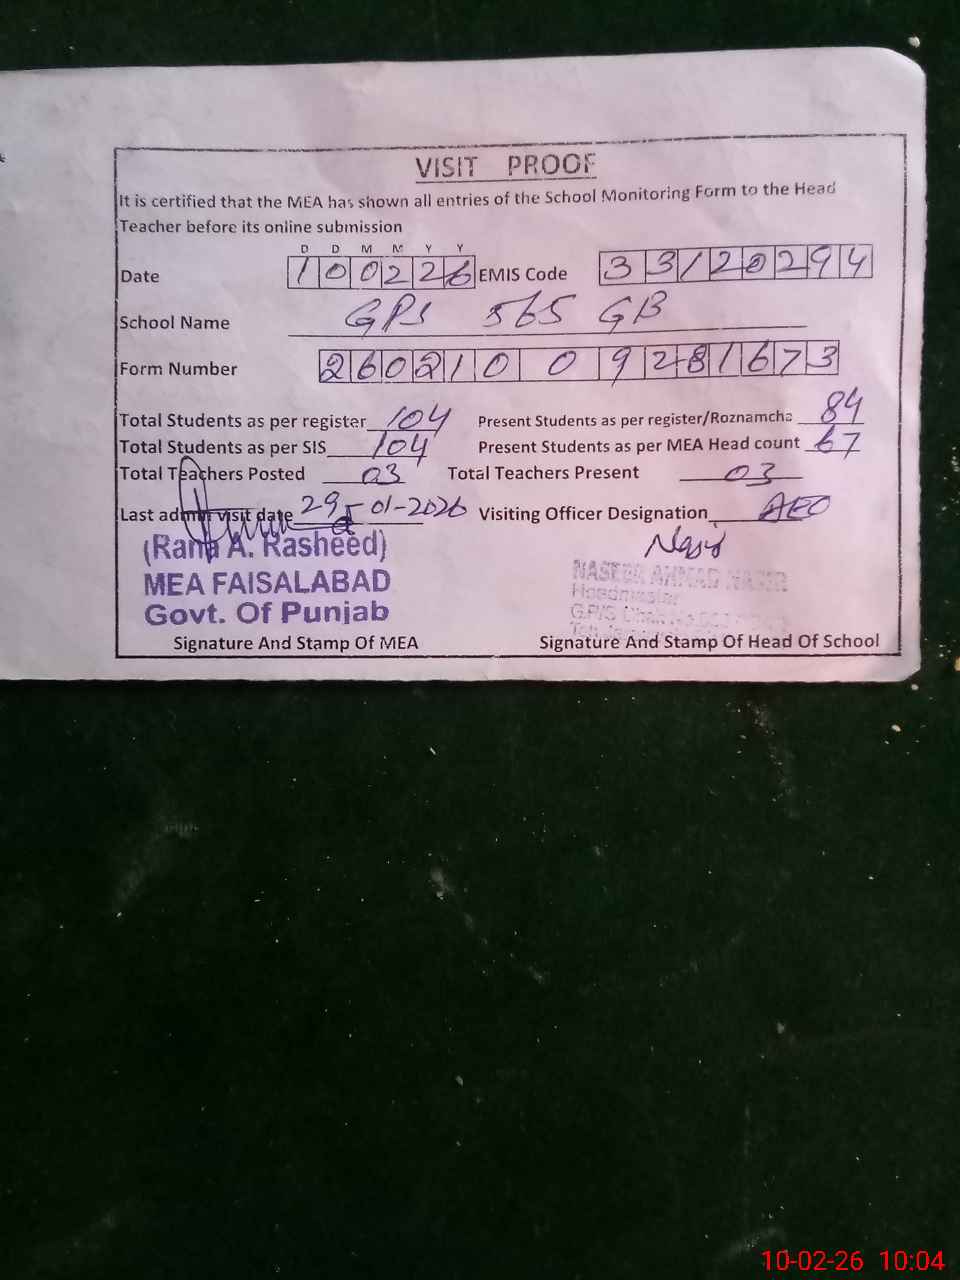 VISIT PROOF
It is certified that the MEA has shown all entries of the School Monitoring Form to the Head
Teacher before its online submission
D D M M Y Y
Date 100226 EMIS Code 33120294
School Name GPS 565 GB
Form Number 26021009281673
Total Students as per register 104 Present Students as per register/Roznamcha 84
Total Students as per SIS 104 Present Students as per MEA Head count 67
Total Teachers Posted 03 Total Teachers Present 03
Last admin visit date 29-01-2026 Visiting Officer Designation AEO
(Rana A. Rasheed)
MEA FAISALABAD
Govt. Of Punjab
Nasir
NASEER AHMAD NASIR
Headmaster
G.P/S Chak No
Signature And Stamp Of MEA Signature And Stamp Of Head Of School
10-02-26 10:04